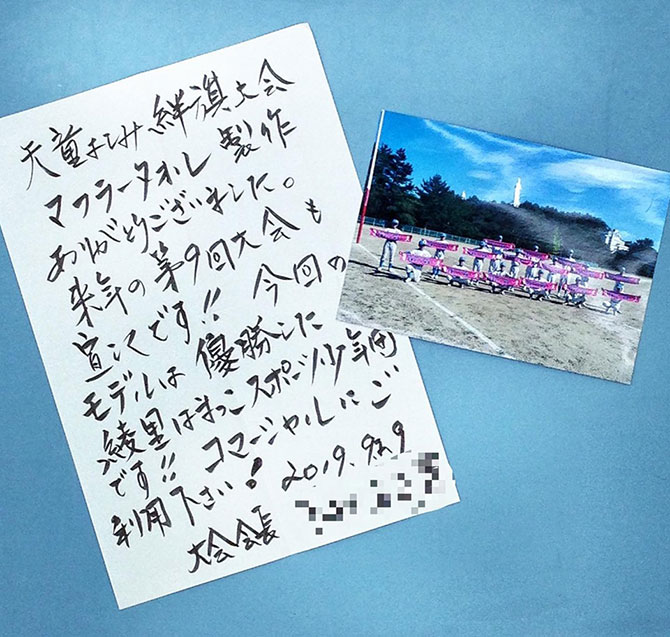 天童よしみ絆旗大会
マフラータオル 製作
ありがとうございました。
来年の第9回大会も
宜しくです!! 今回の
モデルは 優勝した
綾里はまっこスポーツ少年団
です!! コマーシャルにご
利用下さい! 2019.9.9
大会会長